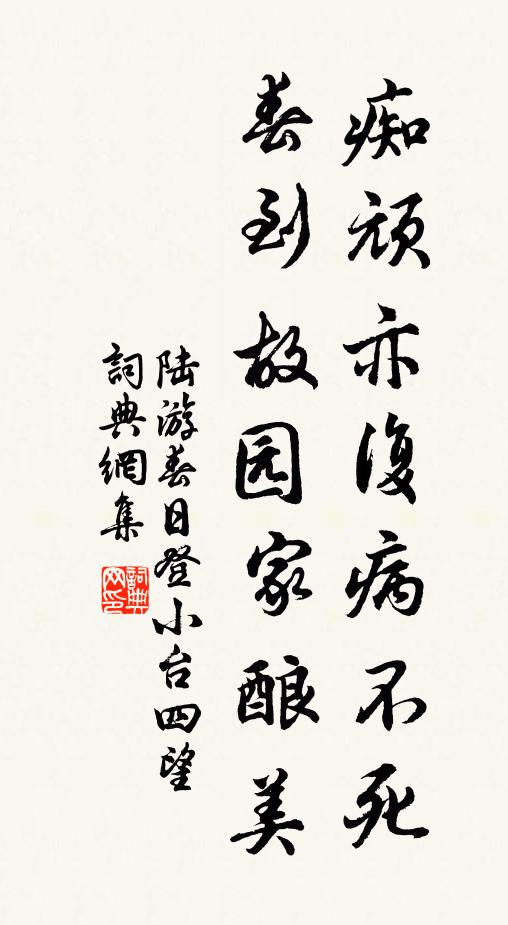 痴顽亦復病不死
春到故园家酿美
陆游春日登小台四望
詞典網集
詞典網印